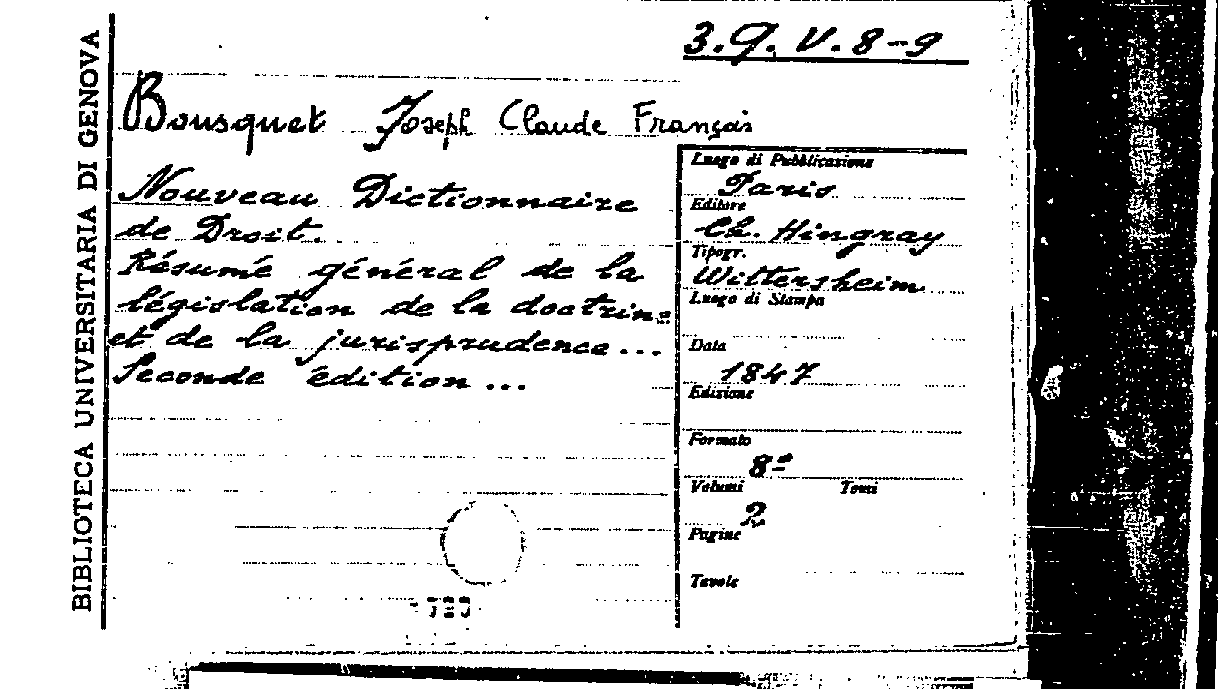 BIBLIOTECA UNIVERSITARIA DI GENOVA
3.Q.V.8-9
Bousquet Joseph Claude Français
Nouveau Dictionnaire
de Droit.
Résumé général de la
législation de la doctrine
et de la jurisprudence...
Seconde édition...
Luogo di Pubblicazione
Paris
Editore
Ch. Hingray
Tipogr.
Wittersheim
Luogo di Stampa
Data
1847
Edizione
Formato
8º
Volumi Tomi
2
Pagine
Tavole